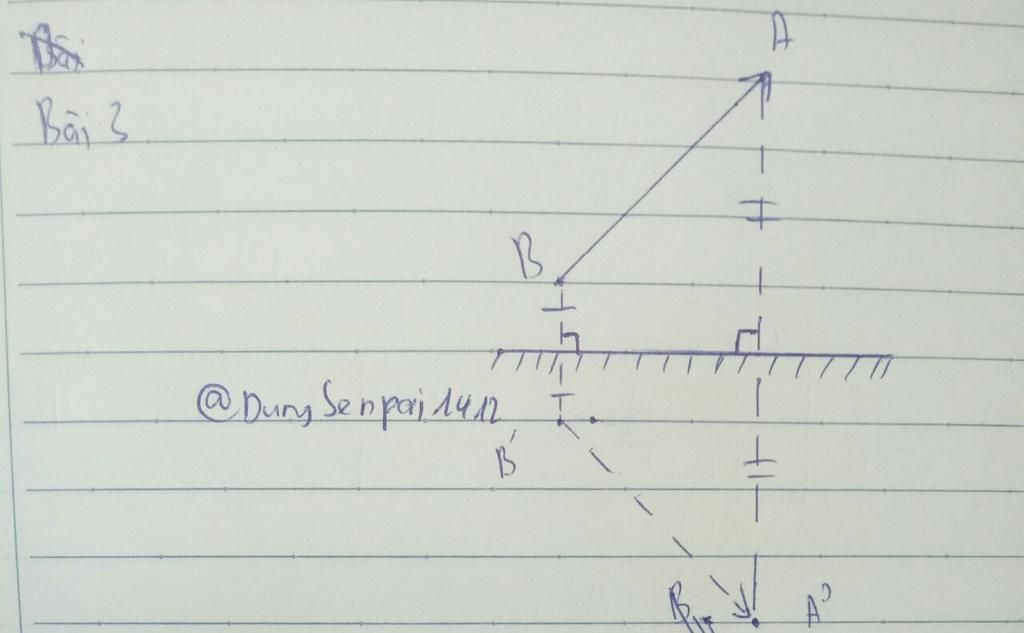 Bài
Bài 3
A
B
@DungSenpai1412
B'
A'